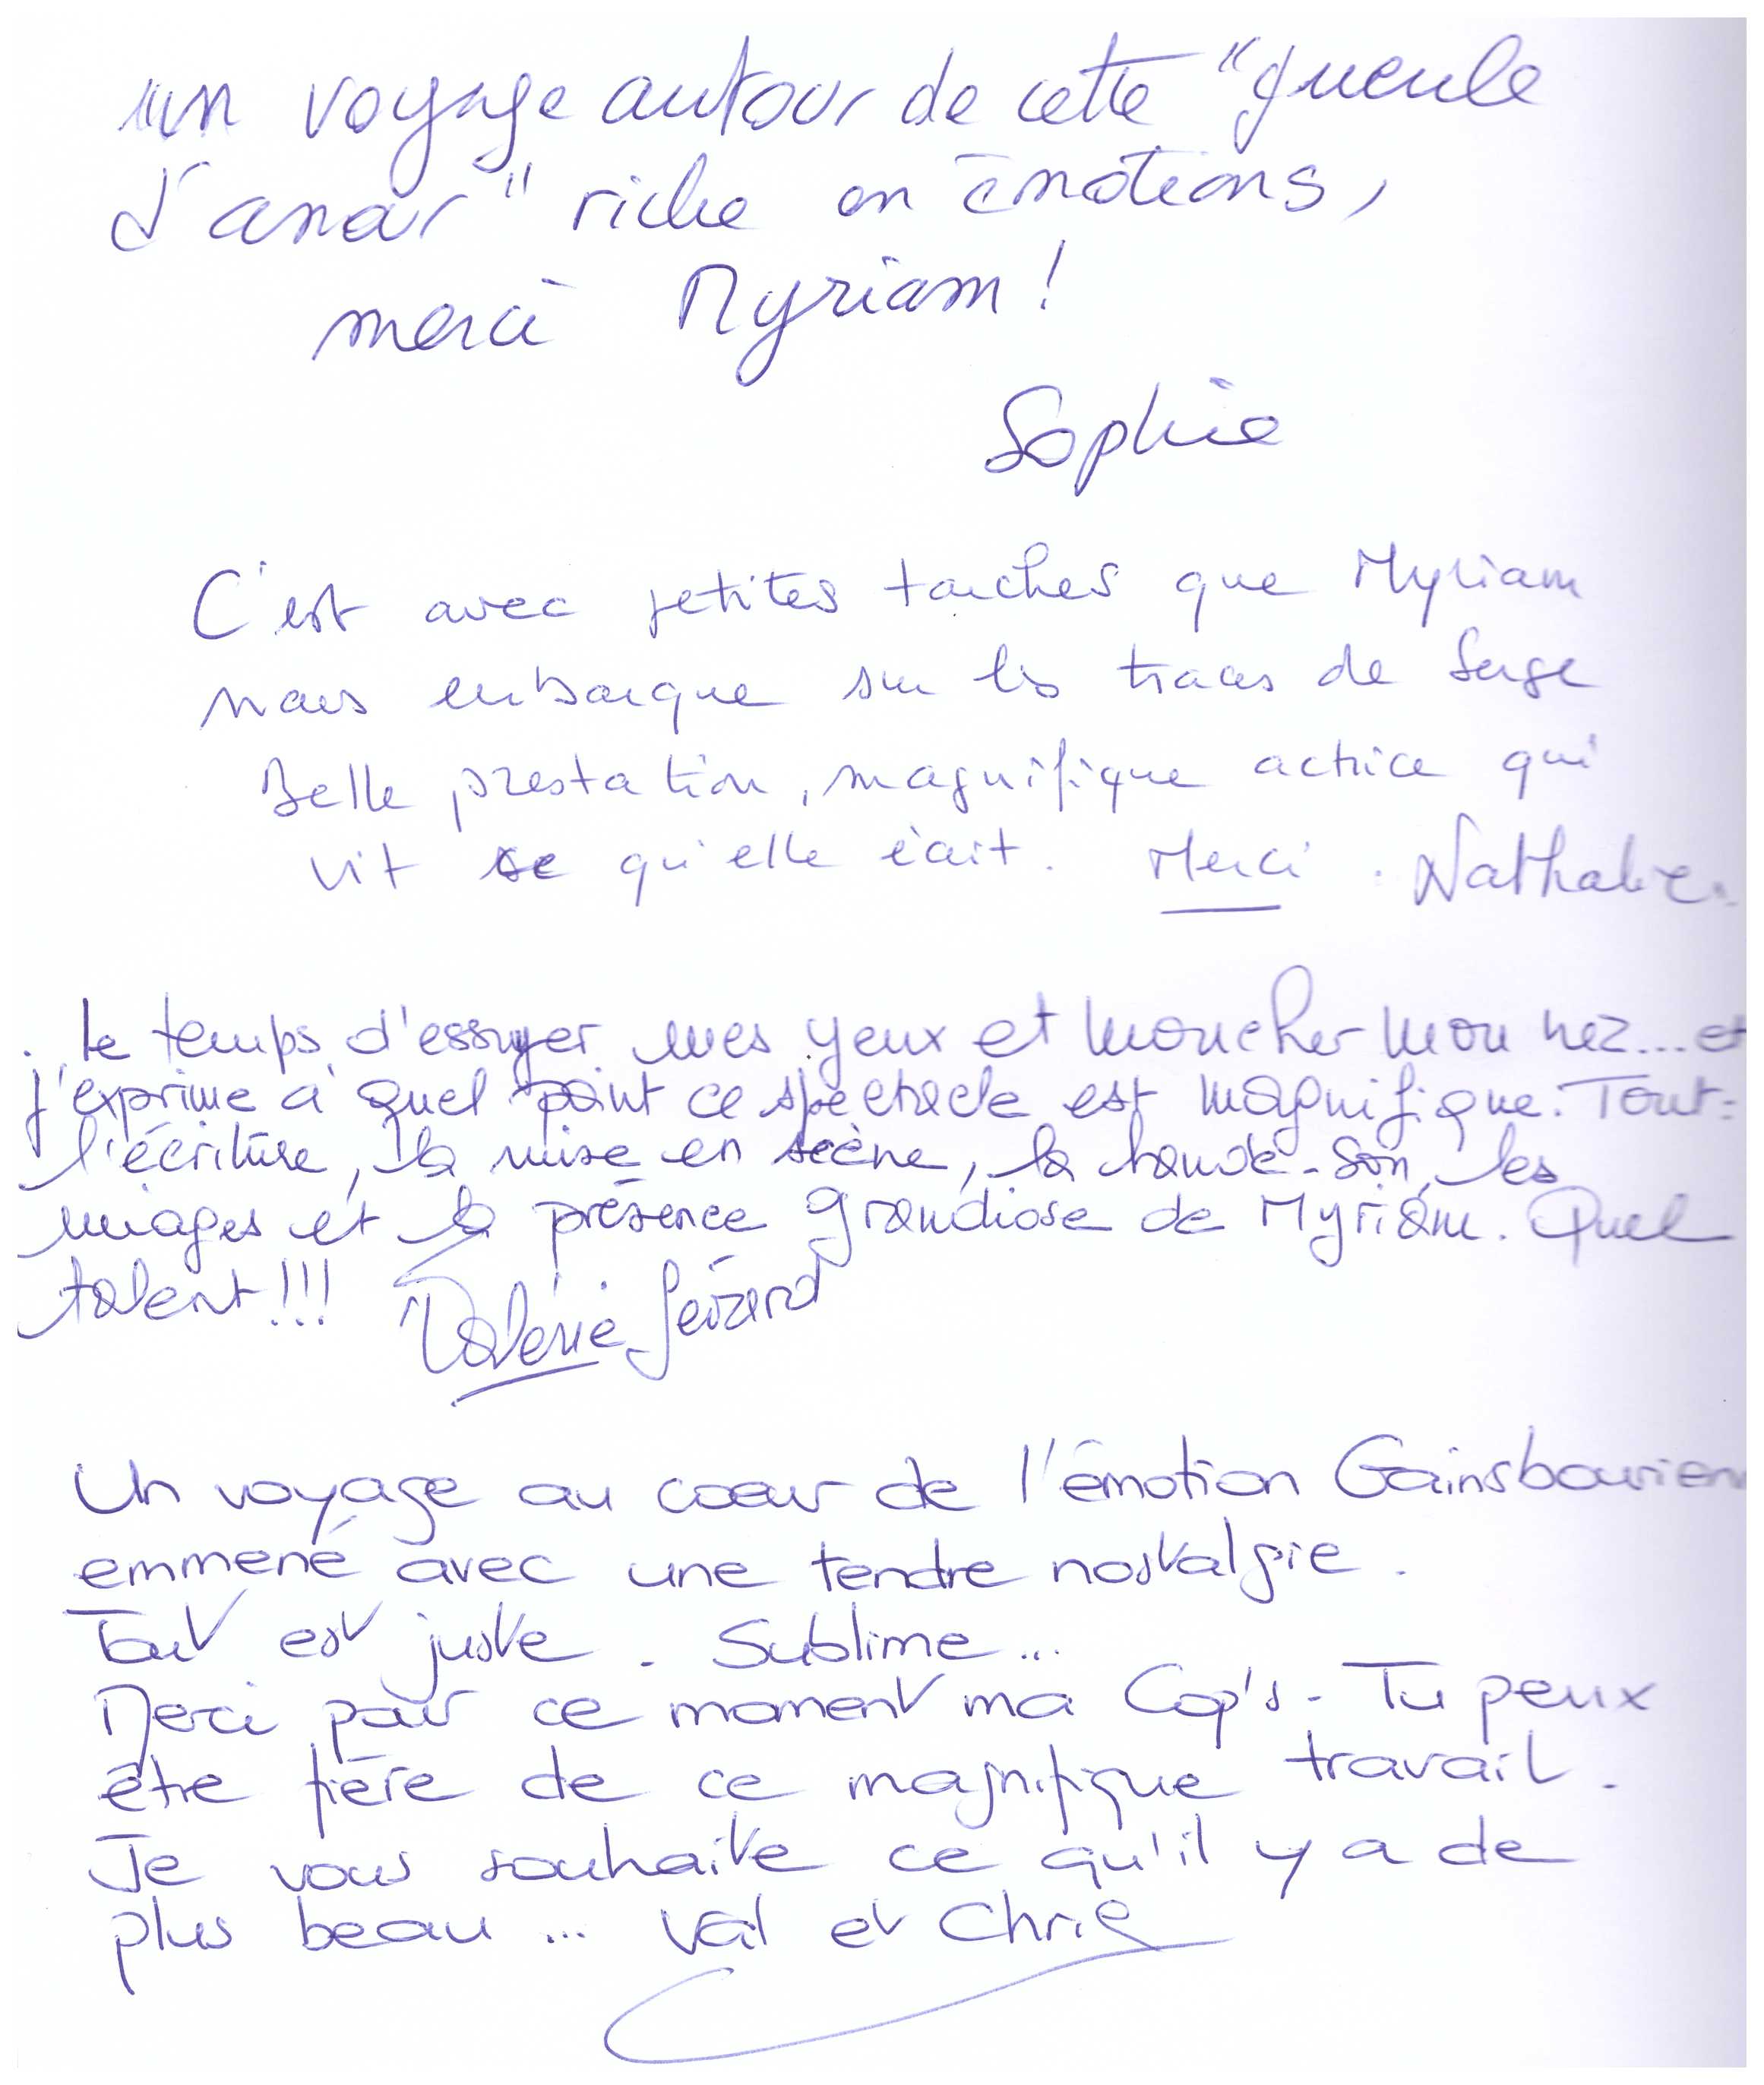 un voyage autour de cette "gueule
d'anar" riche en émotions,
merci Myriam !
Sophie
C'est avec petites touches que Myriam
nous embarque sur les traces de Serge
Belle prestation, magnifique actrice qui
vit ce qu'elle écrit. Merci. Nathalie.
le temps d'essuyer mes yeux et moucher mon nez... et
j'exprime à quel point ce spectacle est magnifique. Tout :
l'écriture, la mise en scène, la bande-son, les
images et la présence grandiose de Myriam. Quel
talent !!! Valérie
Un voyage au coeur de l'émotion Gainsbourien
emmené avec une tendre nostalgie.
Tout est juste. Sublime...
Merci pour ce moment ma Cop's - Tu peux
être fière de ce magnifique travail.
Je vous souhaite ce qu'il y a de
plus beau... Val et Chris